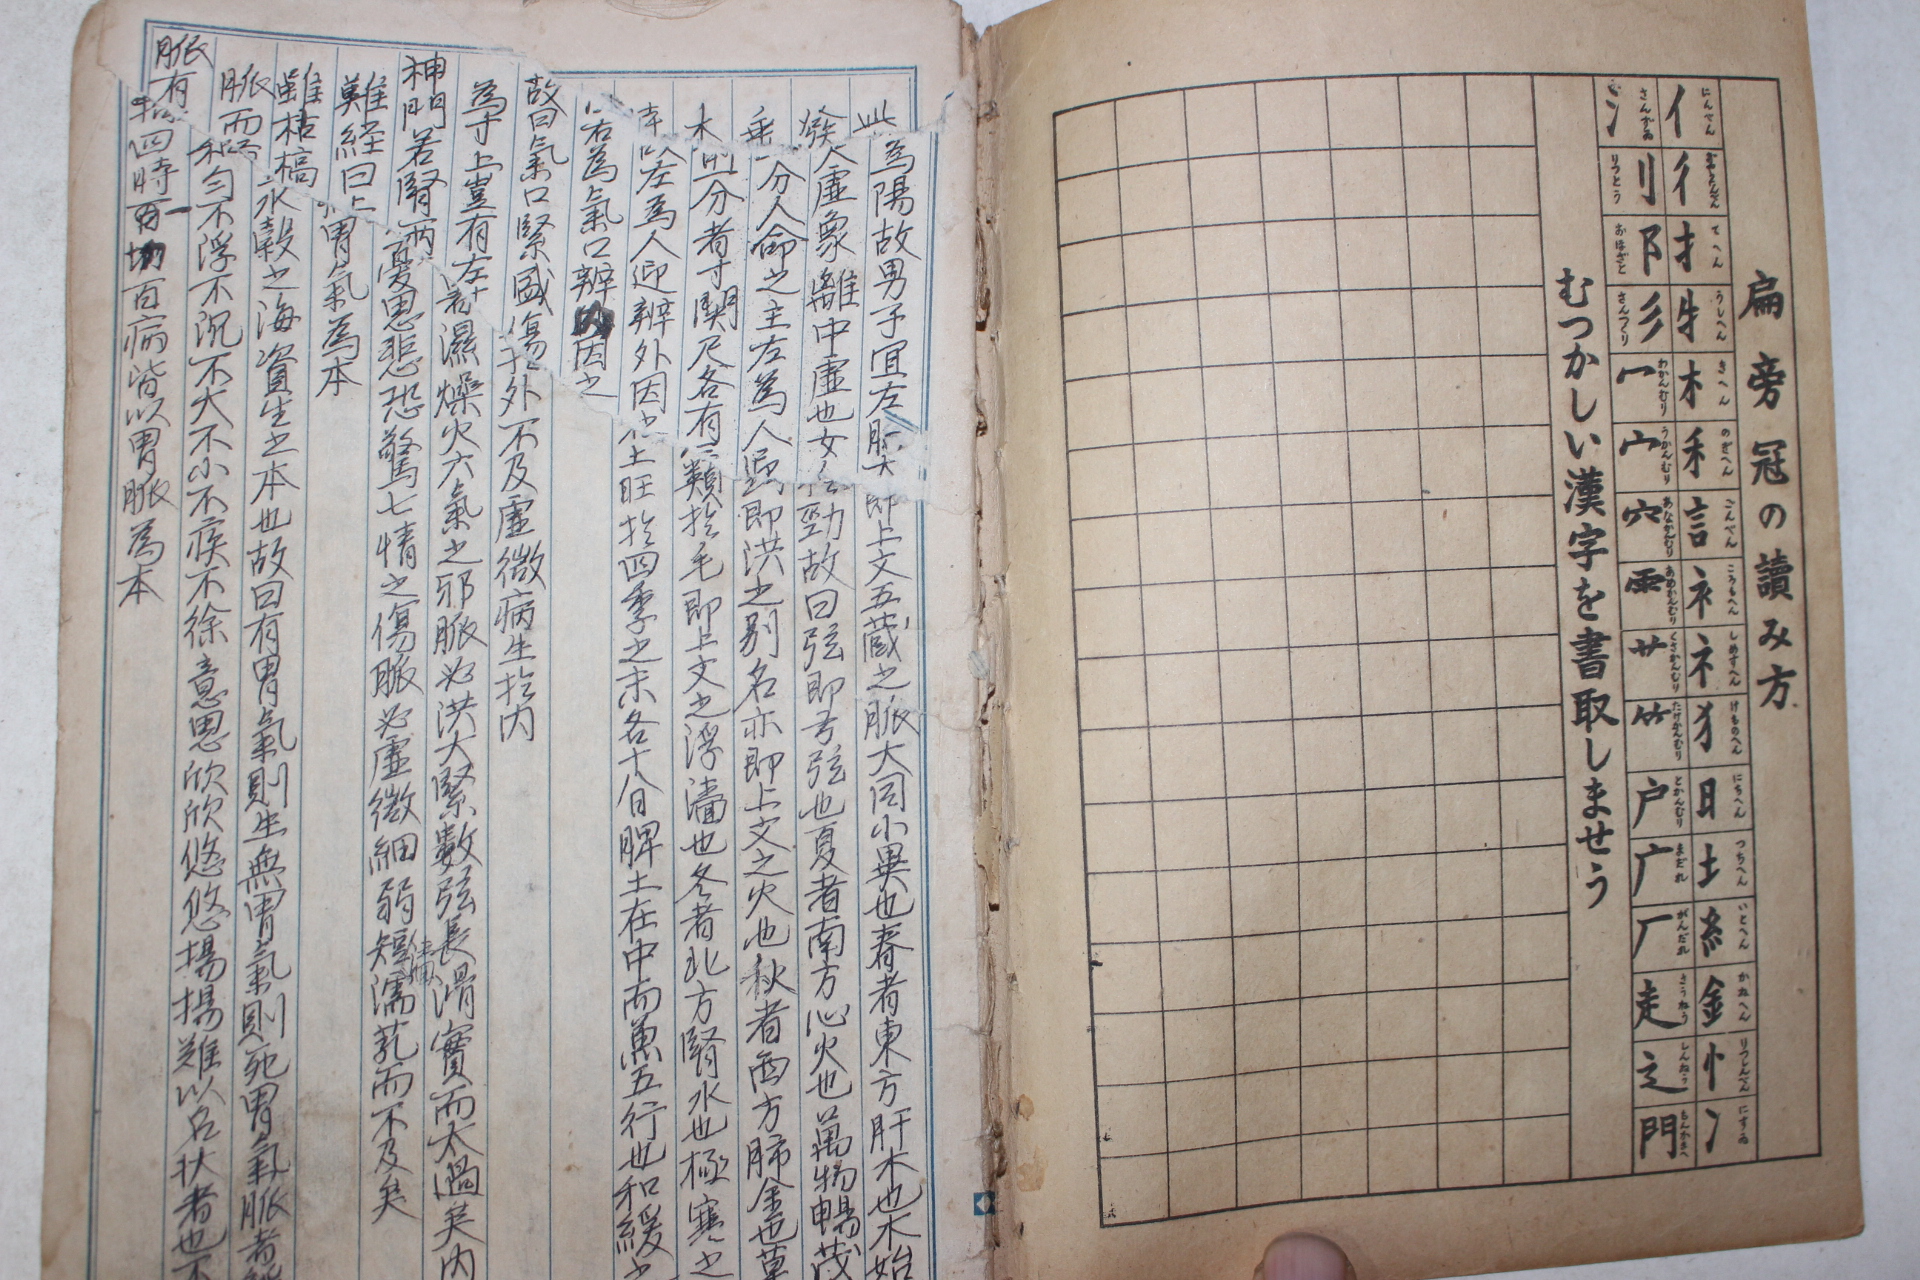 扁旁冠の讀み方
にんべん ぎょうにんべん てへん うしへん きへん のぎへん ごんべん ころもへん しめすへん けものへん にちへん つちへん いとへん かねへん りつしんべん にすゐ
亻彳扌牜木禾言衤礻犭日土糸金忄冫
さんずゐ りつとう おほざと さんづくり わかんむり うかんむり あなかんむり あめかんむり くさかんむり たけかんむり とかんむり まだれ がんだれ さうねう しんねう もんがまへ
氵刂阝彡冖宀穴雨艹竹戸广厂走辶門
むつかしい漢字を書取しませう
此為陽故男子宜左脈大即上文五蔵之脈大同小異也春者東方肝木也木始
發人虛象離中虛也女子 勁故曰弦即弓弦也夏者南方心火也萬物暢茂
垂 分人命之主左為人迎即洪之別名亦即上文之火也秋者西方肺金也草
木 分者寸関尺各有 類於毛即上文之浮濇也冬者北方腎水也極寒之
左為人迎辨外因之土旺於四季之末各十八日脾土在中而萬五行也和緩之
右為氣口辨內因之
故曰氣口緊盛傷於外不及虛微病生於內
為寸上豈有左 濕燥火六氣之邪脈必洪大緊數弦長滑實而太過矣內
神門若腎兩 憂思悲恐驚七情之傷脈必虛微細弱短濇濡芤而不及矣
難經曰上 胃氣為本
雖枯槁 水穀之海資生之本也故曰有胃氣則生無胃氣則死胃氣脈者
脈而 和勻不浮不沉不大不小不疾不徐意思欣欣悠悠揚揚難以名狀者也不
脈有 四時百 百病皆以胃脈為本